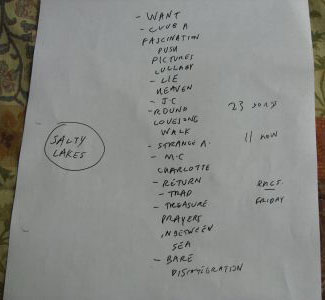 - WANT
- CLUB A
FASCINATION
PUSH
PICTURES
LULLABY
- LIE
HEAVEN
- J.C
- ROUND
LOVESONG
WALK
- STRANGE A.
- M.C
CHARLOTTE
- RETURN
- TRAP
- TREASURE
PRAYERS
INBETWEEN
SEA
- BARE
DISINTIGRATION
SALTY
LAKES
23
11
FRIDAY